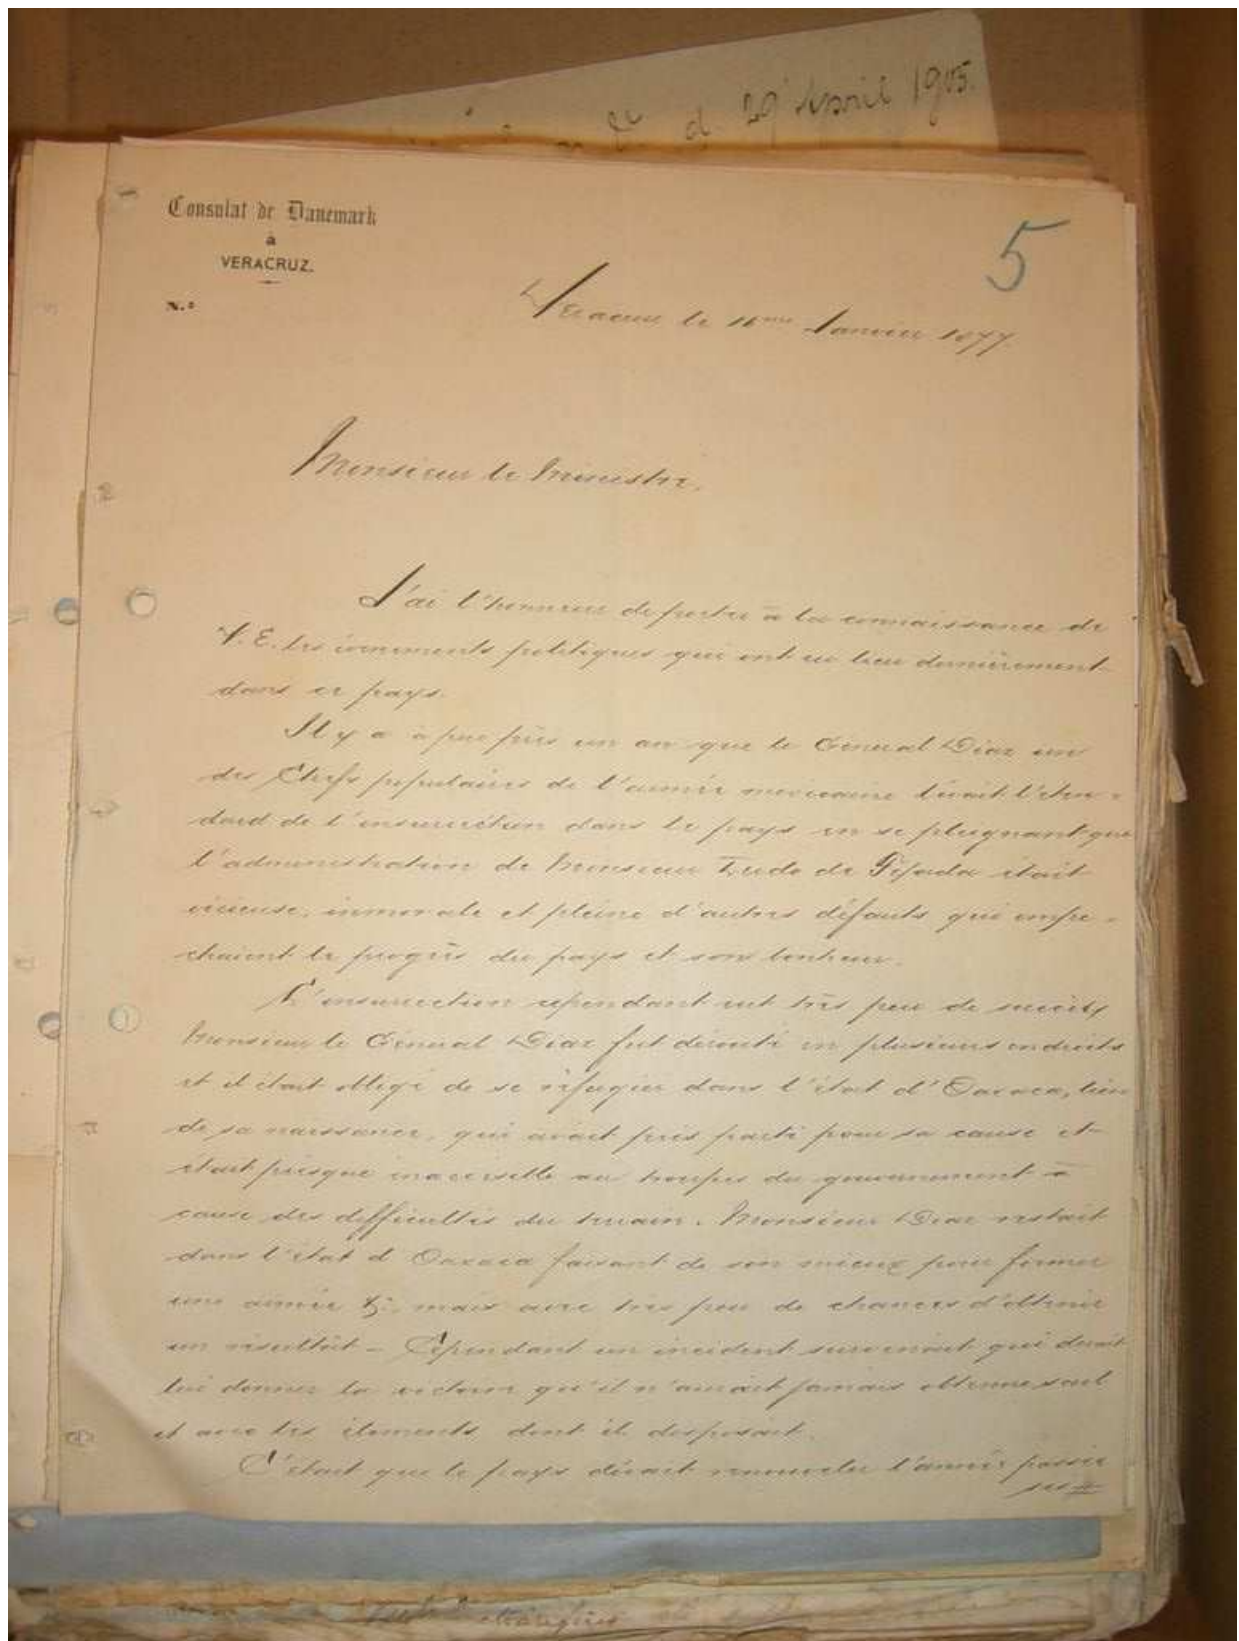 d. 29 April 1905.
Consulat de Danemark
à
VERACRUZ.
N.º
5
Veracruz le 11eme Janvier 1877.
Monsieur le Ministre.
J'ai l'honneur de porter à la connaissance de
V. E. les évenements politiques qui ont eu lieu dernièrement
dans ce pays.
Il y a à peu près un an que le Géneral Diaz un
des Chefs populaires de l'armée mexicaine levait l'éten=
dard de l'insurrection dans le pays en se plaignant que
l'administration de Monsieur Lerdo de Tejada était
vicieuse, immorale et pleine d'autres défauts qui empe=
chaient le progrès du pays et son bonheur.
L'insurrection cependant eut très peu de succès,
Monsieur le Géneral Diaz fut dérouté en plusieurs endroits
et il était obligé de se réfugier dans l'état d'Oaxaca, lieu
de sa naissance, qui avait pris parti pour sa cause et
était presque inacessible au troupes du gouvernement à
cause des difficultés du terrain. Monsieur Diaz restait
dans l'état d Oaxaca faisant de son mieux pour former
une armée &: mais avec très peu de chances d'obtenir
un résultât – Cépendant un incident survenait qui devait
lui donner la victoire qu'il n'aurait jamais obtenue seul
et avec les élements dont il disposait.
C'était que le pays dévait renouveler l'année passée
ses